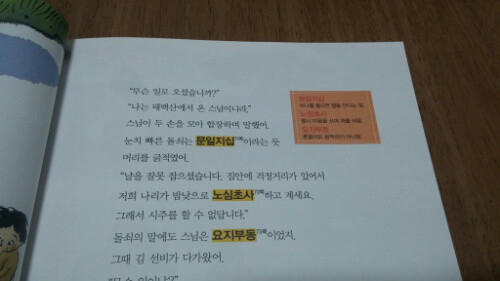 "무슨 일로 오셨습니까?"
"나는 태백산에서 온 스님이니라."
스님이 두 손을 모아 합장하며 말했어.
눈치 빠른 돌쇠는 문일지십이라는 듯
머리를 긁적였어.
"날을 잘못 잡으셨습니다. 집안에 걱정거리가 있어서
저희 나리가 밤낮으로 노심초사하고 계세요.
그래서 시주를 할 수 없답니다."
돌쇠의 말에도 스님은 요지부동이었지.
그때 김 선비가 다가왔어.
문일지십
하나를 들으면 열을 안다는 뜻.
노심초사
몹시 마음을 쓰며 애를 태움.
요지부동